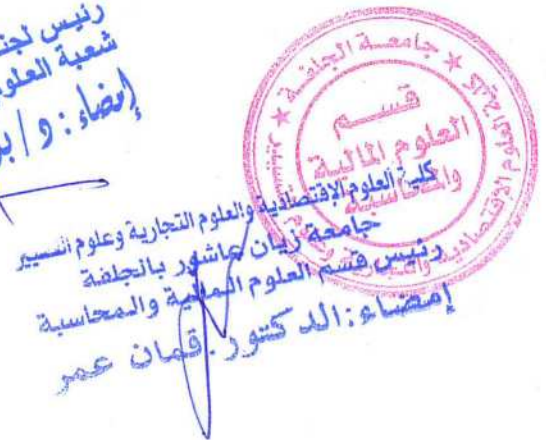 رئيس لجنة
شعبة العلوم
إمضاء: د / بر
جامعة الجلفة
قسم
العلوم المالية
والمحاسبة
كلية العلوم الإقتصادية والعلوم التجارية وعلوم التسيير
جامعة زيان عاشور بالجلفة
رئيس قسم العلوم المالية والمحاسبة
إمضاء: الدكتور. قمان عمر